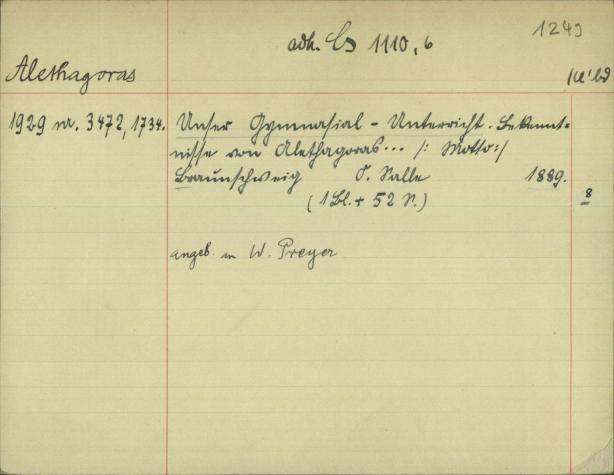 1249
adh. Cs 1110, 6
Alethagoras
1929 nr. 3472, 1734.
Unser Gymnasial-Unterricht. Bekennt-
nisse von Alethagoras... /: Motto:/
Braunschweig O. Salle 1889.
(1 Bl. + 52 S.)
8
angeb. an W. Preyer